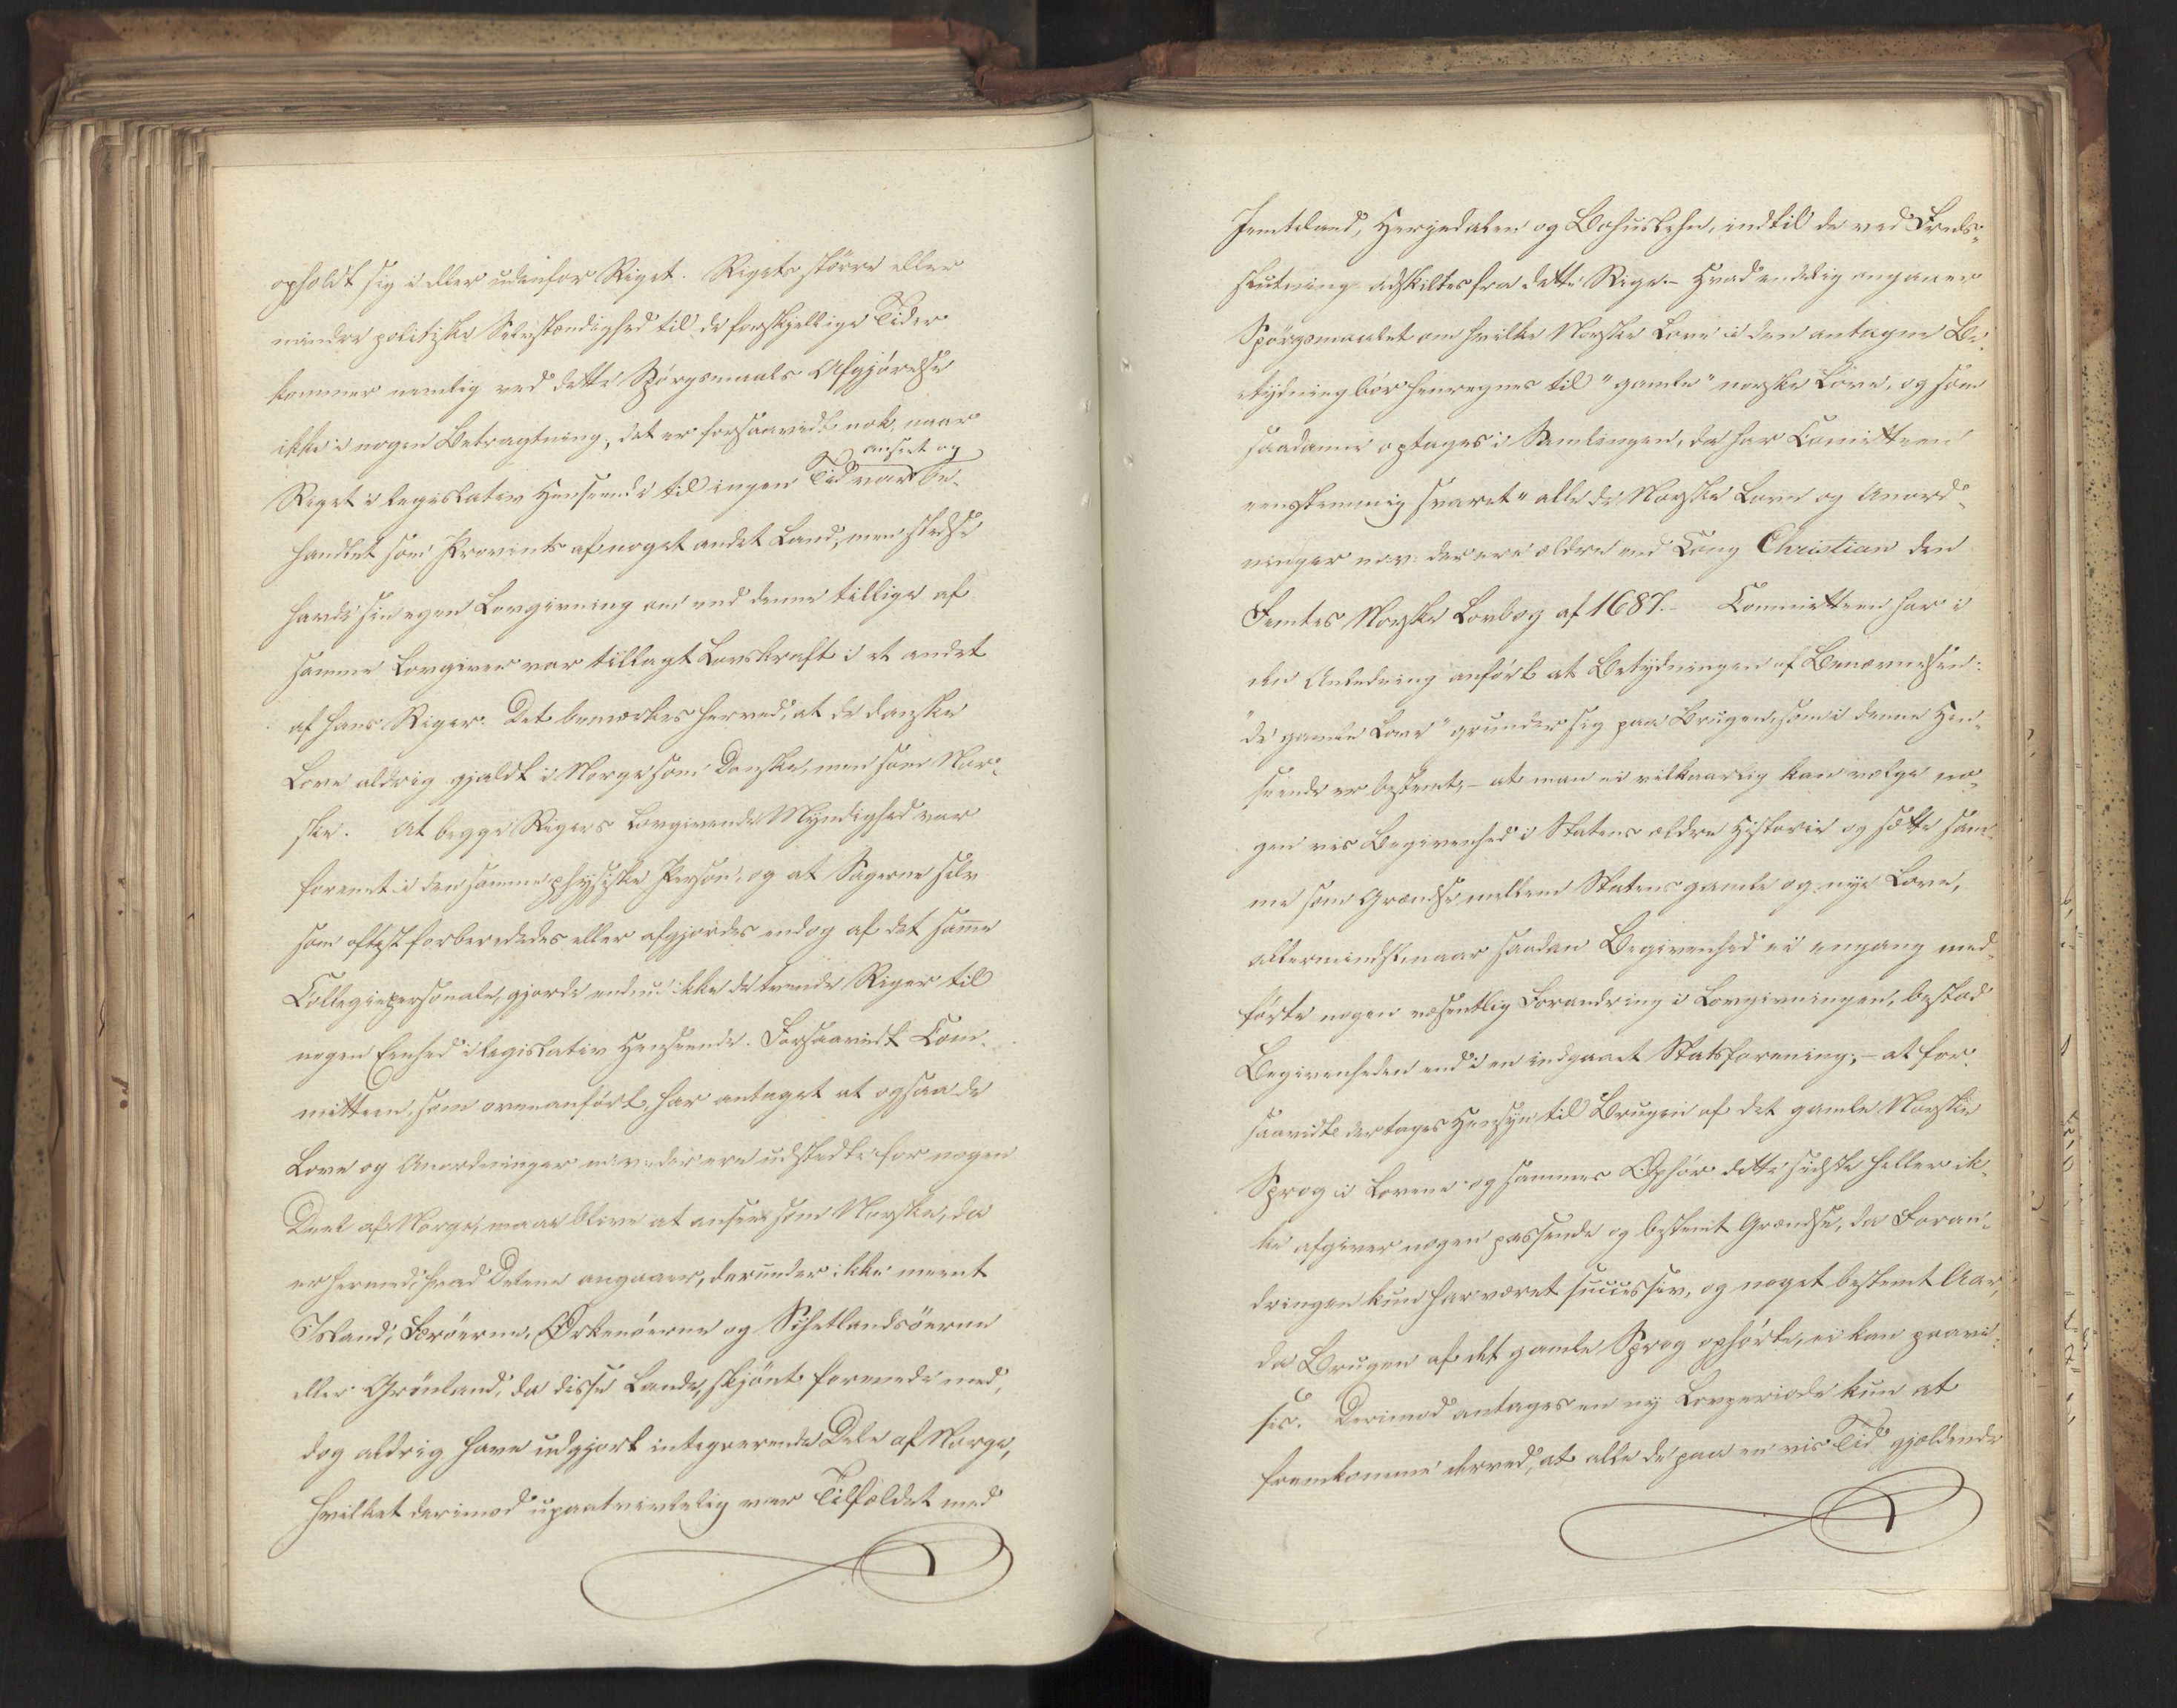 opholdt sig i eller udenfor Riget. Rigets större eller
mindre politiske Selvstændighed til de forskjellige Tider
kommer nemlig ved dette Spörgsmaals Afgjörelse
ikke i nogen Betragtning, det er forsaavidt nok, naar
anseet og
Riget i legislativ Henseende til ingen Tid var be-
handlet som Provints af noget andet Land, men stedse
havde sin egen Lovgivning om end denne tillige af
samme Lovgiver var tillagt Lovskraft i et andet
af hans Riger. Det bemærkes herved, at de danske
Love aldrig gjaldt i Norge som Danske, men som Nor-
ske. At begge Rigers Lovgivende Myndighed var
forenet i den samme physiske Person, og at Sagerne selv
som oftest forberededes eller afgjordes endog af det sam̅e
Collegiepersonale, gjorde endnu ikke de tvende Riger til
nogen Eenhed i legislativ Henseende. Forsaavidt Com-
mitteen, som ovenanfört, har antaget at ogsaa de
Love og Anordninger m: v: der ere udstedte for nogen
Deel af Norge, maae blive at ansee som Norske, da
er hermed, hvad Delene angaaer, derunder ikke meent
Island, Færöerne, Orkenöerne og Schetlandsöerne
eller Grönland, da disse Lande, skjönt forenede med,
dog aldrig have udgjort integrerende Dele af Norge,
hvilket derimod upaatvivlelig var Tilfældet med
Jemteland, Herjedalen og Bohuslehn, indtil de ved Freds-
slutning adskiltes fra dette Rige.- Hvad endelig angaaer
Spörgsmaalet om hvilke Norske Love i den antagne Be-
tydning bör henregnes til "gamle" norske Love, og som
saadanne optages i Samlingen, da har Comitteen
eenstemmig svaret "alle de Norske Love og Anord-
ninger m: v: der ere ældre end Kong Christian den
Femtes Norske Lovbog af 1687.- Committeen har i
den Anledning anfört at Betydningen af Benævnelsen:
"de gamle Love" grunder sig paa Brugen, som i denne Hen-
seende er bestemt,- at man ei vilkaarlig kan vælge no-
gen vis Begivenhed i Statens ældre Historie og sætte sam-
me som Grændse mellem Statens gamle og nye Love,
allermindst, naar saadan Begivenhed ei engang med-
förte nogen væsentlig Forandring i Lovgivningen, bestod
Begivenheden end i en indgaaet Statsforening;- at for-
saavidt der tages Hensyn til Brugen af det gamle Norske
Sprog i Lovene og sammes Ophör dette sidste heller ik-
ke afgiver nogen passende og bestemt Grændse, da Foran-
dringen kun har været successiv, og noget bestemt Aar,
da Brugen af det gamle Sprog ophörte, ei kan paavi-
ses. Derimod antages en ny Lovperiode kun at
fremkomme derved, at alle de paa en vis Tid gjældende